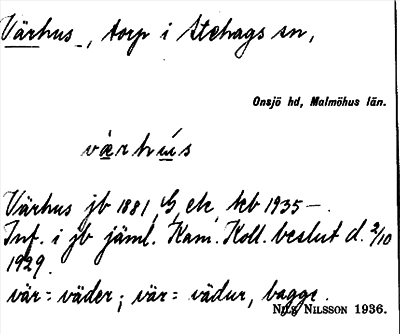 Värhus, torp i Stehags sn,
Onsjö hd, Malmöhus län.
værhús
Värhus jb 1881, G, ek, kb 1935 –.
Inf. i jb jäml. Kam. Koll. beslut d. 2/10
1929.
vär = väder; vär = vädur, bagge.
NILS NILSSON 1936.